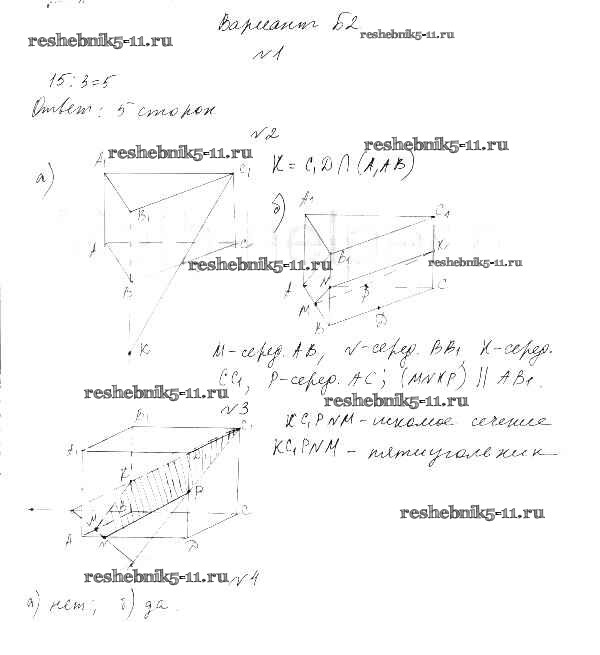 Вариант Б2
reshebnik5-11.ru
reshebnik5-11.ru
№1
15:3=5
Ответ: 5 сторон
№2
reshebnik5-11.ru
reshebnik5-11.ru
а)
A₁
C₁
B₁
A
C
B
K
K = C₁D ∩ (A₁AB)
б)
A₁
C₁
B₁
K
A
N
P
C
M
B
D
reshebnik5-11.ru
reshebnik5-11.ru
M-серед. AB, N-серед. BB₁, K-серед.
CC₁, P-серед. AC; (MNKP) || AB₁.
reshebnik5-11.ru
reshebnik5-11.ru
№3
B₁
C₁
A₁
D₁
K
P
B
C
M
A
N
D
KC₁PNM - искомое сечение
KC₁PNM - пятиугольник
reshebnik5-11.ru
reshebnik5-11.ru
№4
а) нет; б) да.